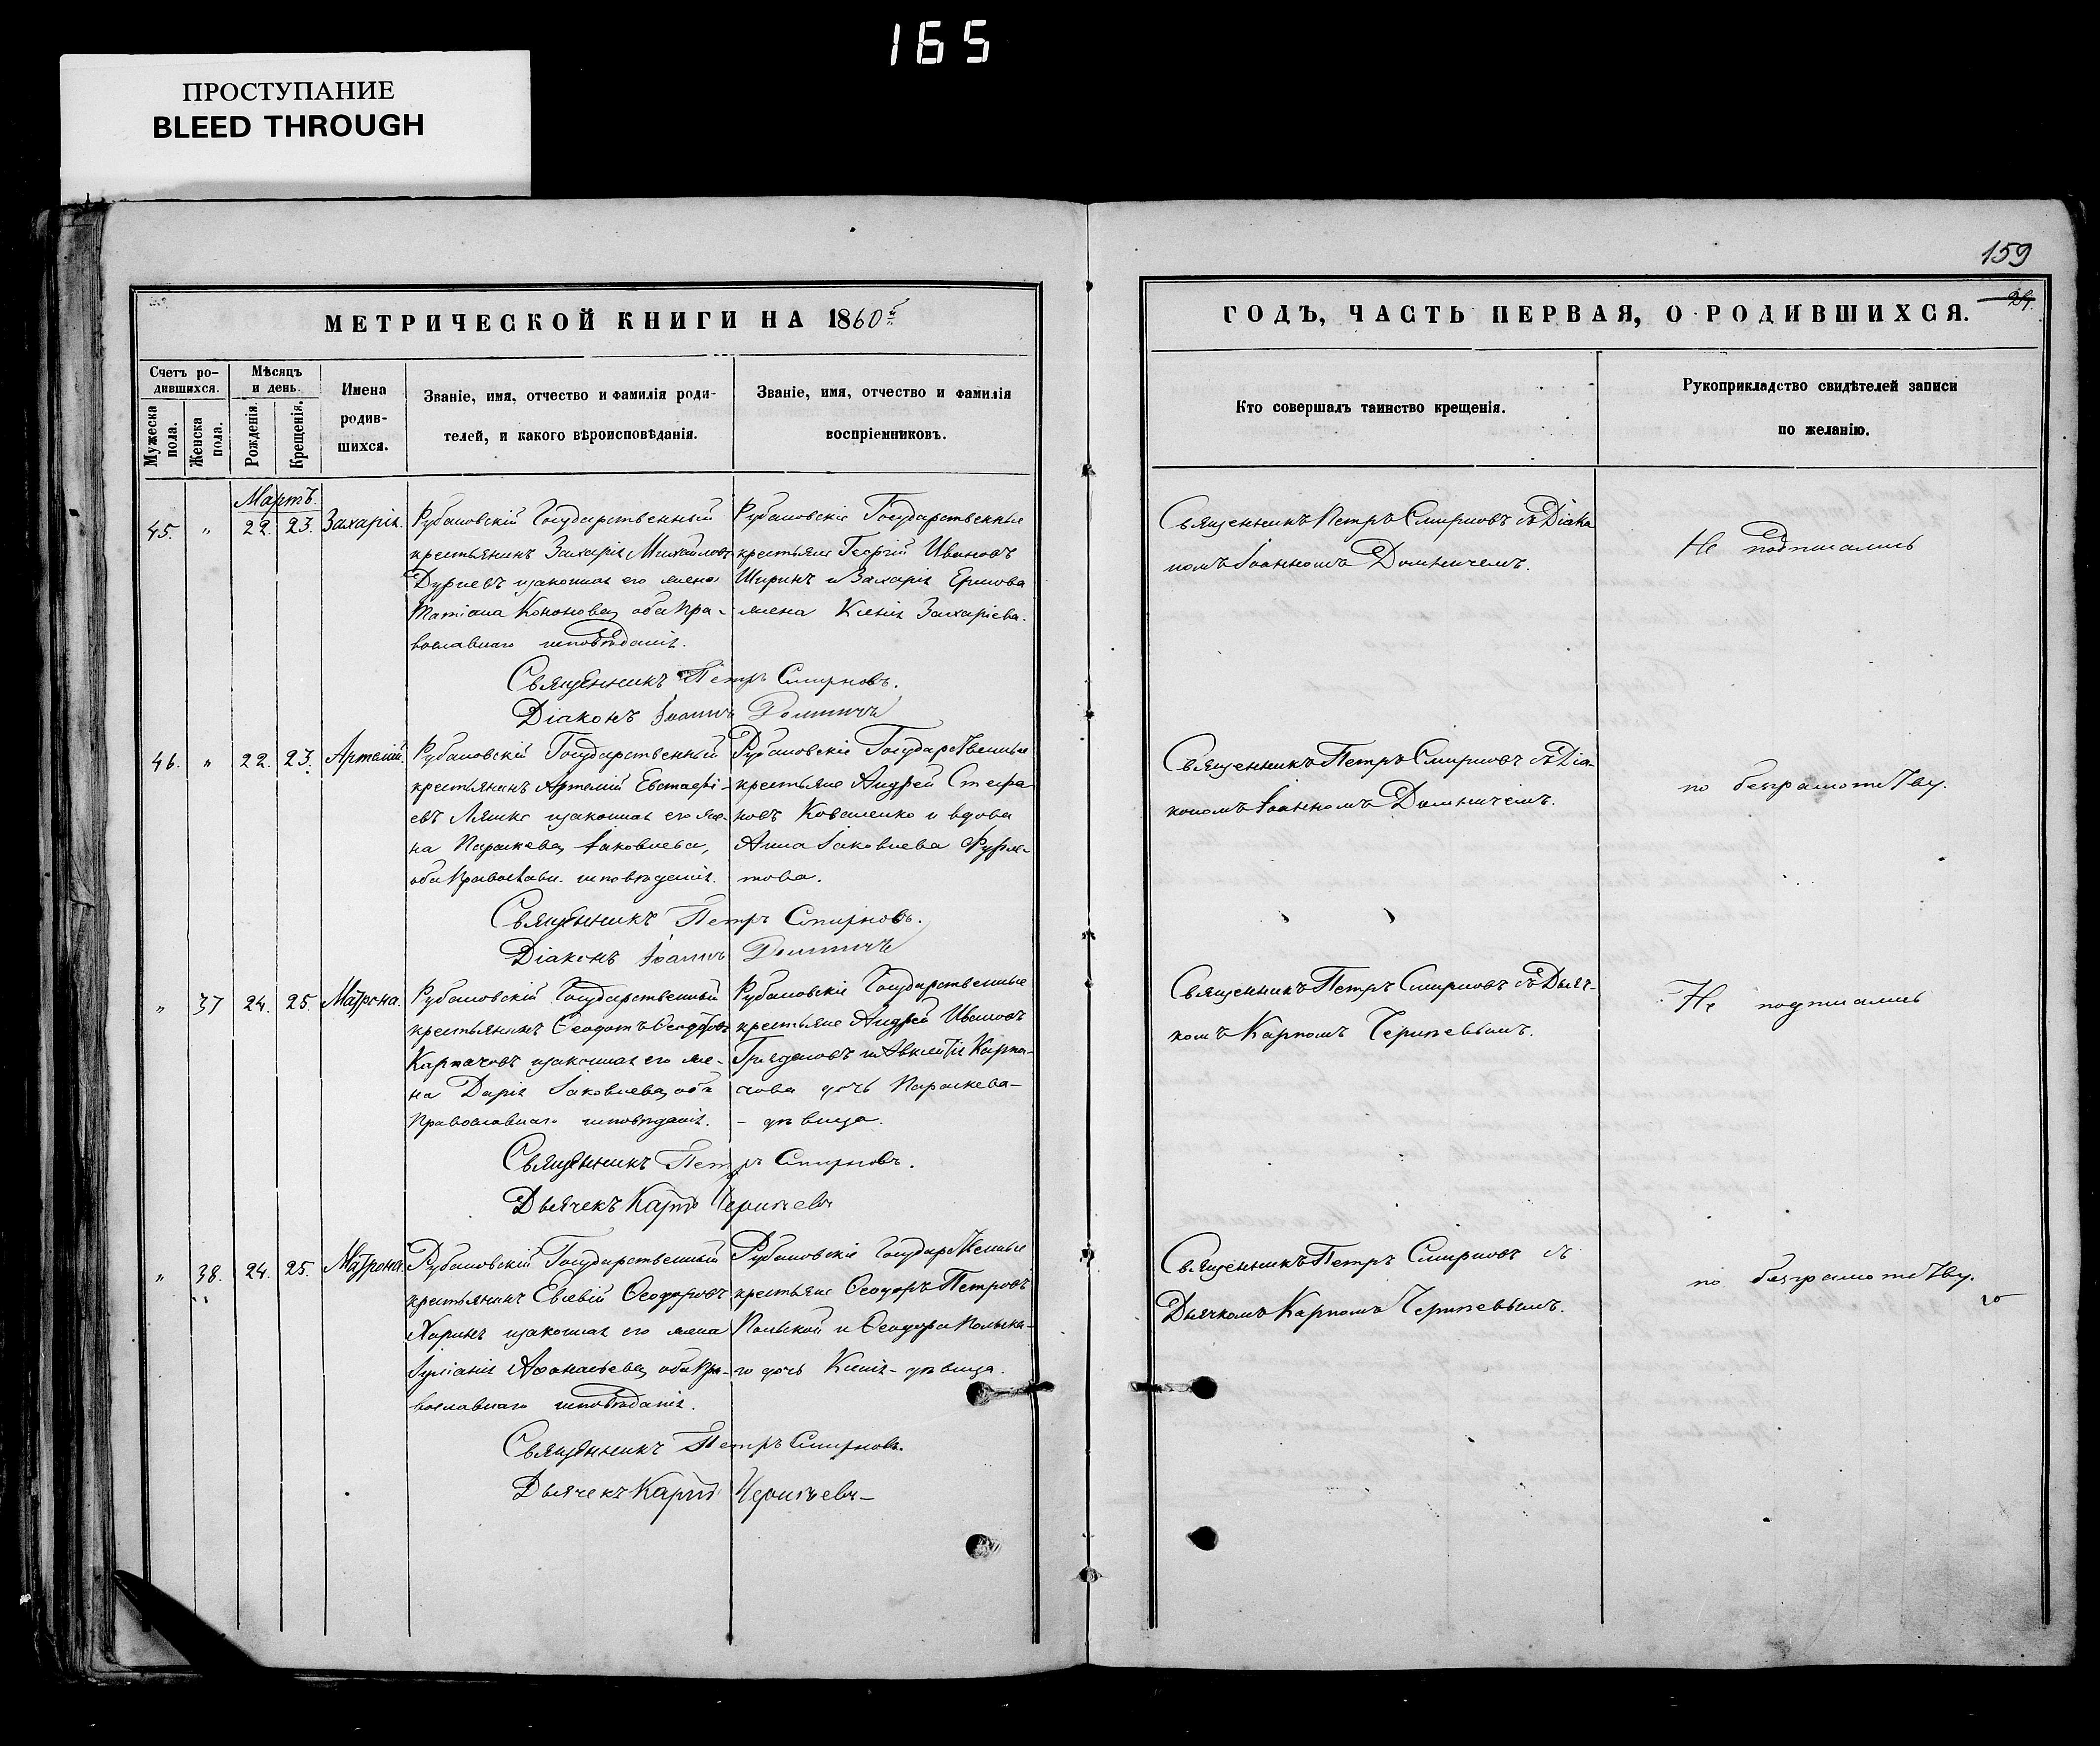 165
ПРОСТУПАНИЕ
BLEED THROUGH
159
29.
МЕТРИЧЕСКОЙ КНИГИ НА 1860й
ГОДЪ, ЧАСТЬ ПЕРВАЯ, О РОДИВШИХСЯ.
Счетъ ро-
дившихся.
Мужеска
пола.
Женска
пола.
Мѣсяцъ
и день.
Рожденія.
Крещенія.
Имена
родив-
шихся.
Званіе, имя, отчество и фамилія роди-
телей, и какого вѣроисповѣданія.
Званіе, имя, отчество и фамилія
воспріемниковъ.
Кто совершалъ таинство крещенія.
Рукоприкладство свидѣтелей записи
по желанію.
Мартъ.
45. " 22. 23. Захарія.
Рубановскій Государственный
крестьянинъ Захарія Михайловъ
Дуриевъ изаконная его жена
Татіана Кононова, оба пра-
вославнаго исповѣданія.
Рубановскіе Государственные
крестьяне Георгій Ивановъ
Ширинъ и Захарія Ершова
жена Ксенія Захаріева.
Священникъ Петръ Смирновъ съ Діако
номъ Іоанномъ Домничемъ.
Не подписались
Священникъ Петръ Смирновъ.
Діаконъ Іоаннъ Домничъ
46. " 22. 23. Артемій.
Рубановскій Государственный
крестьянинъ Артемій Евстафі-
евъ Ляшко изаконная его же-
на Параскева Іаковлева,
оба Православн. исповѣданія.
Рубановскіе Государственные
крестьяне Андрей Стефа
новъ Коваленко и вдова
Анна Іаковлева Фурма-
това.
Священникъ Петръ Смирновъ съ Діа-
кономъ Іоанномъ Домничемъ.
по безграмотству.
Священникъ Петръ Смирновъ.
Діаконъ Іоаннъ Домничъ
" 37 24. 25. Матрона.
Рубановскій Государственный
крестьянинъ Ѳеодотъ Ѳеодоровъ
Карпачовъ изаконная его же-
на Дарія Іаковлева, оба
Православнаго исповѣданія.
Рубановскіе Государственные
крестьяне Андрей Ивановъ
Карпа-
чова дочь Параскева-
- дѣвица.
Священникъ Петръ Смирновъ съ Дьяч-
комъ Карпомъ Чернѣевымъ.
Не подписались
Священникъ Петръ Смирновъ.
Дьячекъ Карпъ Чернѣевъ
" 38. 24. 25. Матрона.
Рубановскій Государственный
крестьянинъ Евсевій Ѳеодоровъ
Харинъ изаконная его жена
Іуліанія Аѳанасьева, оба Пра-
вославнаго исповѣданія.
Рубановскіе Государственные
крестьяне Ѳеодоръ Петровъ
Польской и Ѳеодора Польска-
го дочь Ксенія - дѣвица.
Священникъ Петръ Смирновъ съ
Дьячкомъ Карпомъ Чернѣевымъ.
по безграмотству.
Священникъ Петръ Смирновъ.
Дьячекъ Карпъ Чернѣевъ-